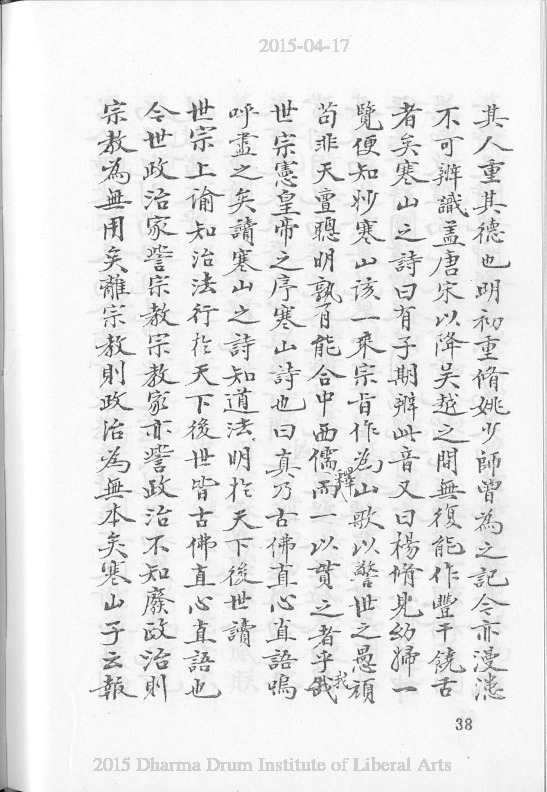 2015-04-17
其人重其德也明初重脩姚少師曾為之記今亦漫漶
不可辨識盖唐宋以降吴越之間無復能作豐干饒舌
者矣寒山之詩曰有子期辨此音又曰楊脩見幼婦一
覽便知妙寒山該一乘宗旨作為山歌以警世之愚頑
苟非天亶聰明孰有能合中西儒釋而一以貫之者乎我
世宗憲皇帝之序寒山詩也曰真乃古佛直心直語嗚
呼盡之矣讀寒山之詩知道法明於天下後世讀
世宗上諭知治法行於天下後世皆古佛直心直語也
今世政治家訾宗教宗教家亦訾政治不知廢政治則
宗教為無用矣離宗教則政治為無本矣寒山子云報
38
2015 Dharma Drum Institute of Liberal Arts